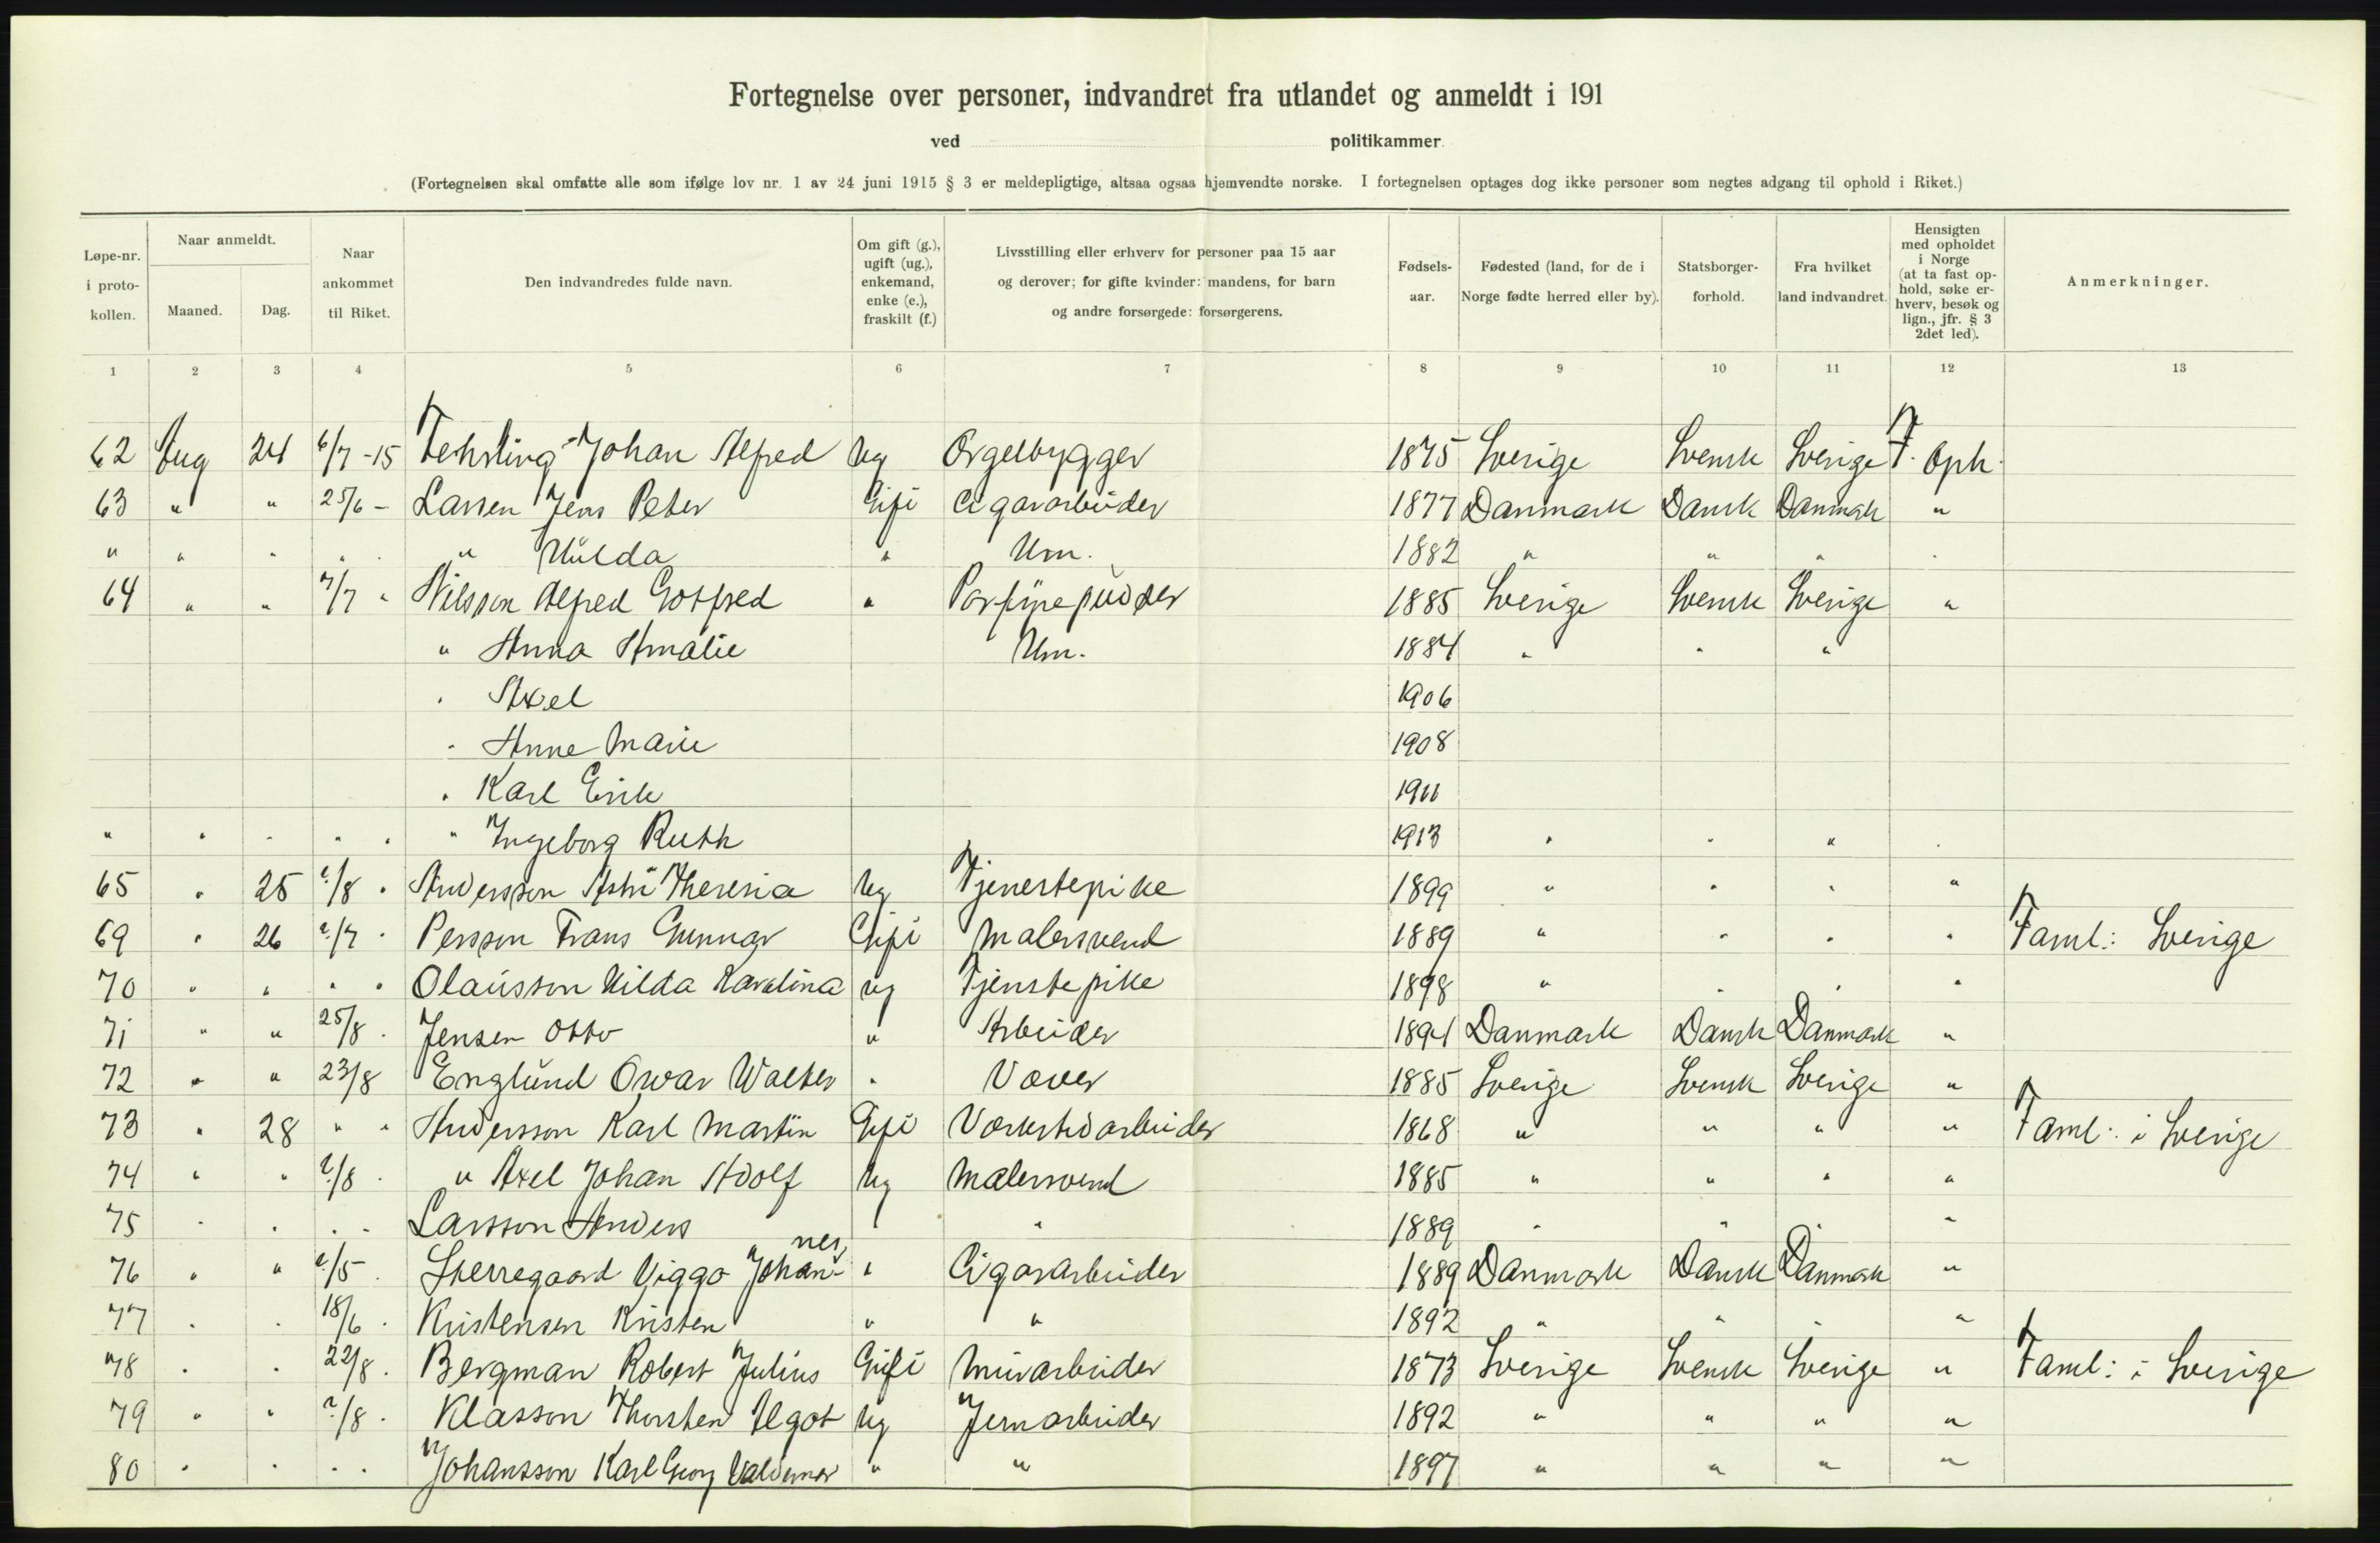 Fortegnelse over personer, indvandret fra utlandet og anmeldt i 191
ved politikammer.
(Fortegnelsen skal omfatte alle som ifølge lov nr. 1 av 24 juni 1915 § 3 er meldepligtige, altsaa ogsaa hjemvendte norske. I fortegnelsen optages dog ikke personer som negtes adgang til ophold i Riket.)
Løpe-nr. i proto- kollen.
Naar anmeldt.
Maaned. Dag.
Naar ankommet til Riket.
Den indvandredes fulde navn.
Om gift (g.), ugift (ug.), enkemand, enke (e.), fraskilt (f.)
Livsstilling eller erhverv for personer paa 15 aar og derover; for gifte kvinder: mandens, for barn og andre forsørgede: forsørgerens.
Fødsels- aar.
Fødested (land, for de i Norge fødte herred eller by).
Statsborger- forhold.
Fra hvilket land indvandret.
Hensigten med opholdet i Norge (at ta fast op- hold, søke er- hverv, besøk og lign., jfr. § 3 2det led).
Anmerkninger.
1 2 3 4 5 6 7 8 9 10 11 12 13
62 Aug 24 6/7 -15 Johan Alfred Ug Orgelbygger 1875 Sverige Svensk Sverige F. Oph.
63 " " 25/6 - Larsen Jens Peter Gift Cigararbeider 1877 Danmark Dansk Danmark "
" " " " " Hulda " Hm. 1882 " " " "
64 " " 7/7 " Nilsson Alfred Gotfred " 1885 Sverige Svensk Sverige "
" Anna Amalie Hm. 1884 " " "
" Axel 1906
" Anne Marie 1908
" Karl Erik 1911
" " " " " " Ingeborg Ruth 1913 " " " "
65 " 25 ?/8 " Andersson Theresia Ug Tjenestepike 1899 " " " "
69 " 26 ?/7 " Persson Frans Gunnar Gift Malersvend 1889 " " " " Faml: Sverige
70 " " " " Olausson Hilda Karolina Ug Tjenstepike 1898 " " " "
71 " " 25/8 " Jensen Otto " Arbeider 1894 Danmark Dansk Danmark "
72 " " 23/8 Englund Oscar Walter " Væver 1885 Sverige Svensk Sverige "
73 " 28 " " Andersson Karl Martin Gift Værkstedarbeider 1868 " " " " Faml: i Sverige
74 " " ?/8 " " Axel Johan Adolf Ug Malersvend 1885 " " " "
75 " " " " Larsson Anders " " 1889 " " " "
76 " " ?/5 " Viggo Johannes " Cigararbeider 1889 Danmark Dansk Danmark "
77 " " 18/6 " Kristensen Kristen " " 1892 " " " "
78 " " 22/8 " Bergman Robert Julius Gift Murarbeider 1873 Sverige Svensk Sverige " Faml: i Sverige
79 " " ?/8 " Klasson Thorsten Algot Ug Jernarbeider 1892 " " " "
80 " " " " Johansson Karl Georg Valdemar " " 1897 " " " "